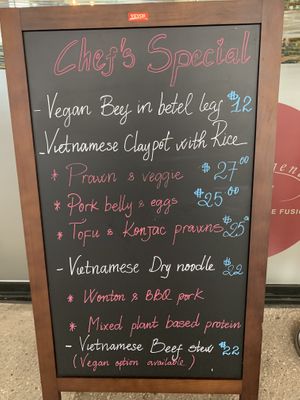 Chef's Special
- Vegan Beef in betel leaf $12
- Vietnamese Claypot with Rice
* Prawn & veggie $27.00
* Pork belly & eggs $25.00
* Tofu & Konjac prawns $25
- Vietnamese Dry noodle $22
* Wonton & BBQ pork
* Mixed plant based protein
- Vietnamese Beef stew $22
(Vegan option available)